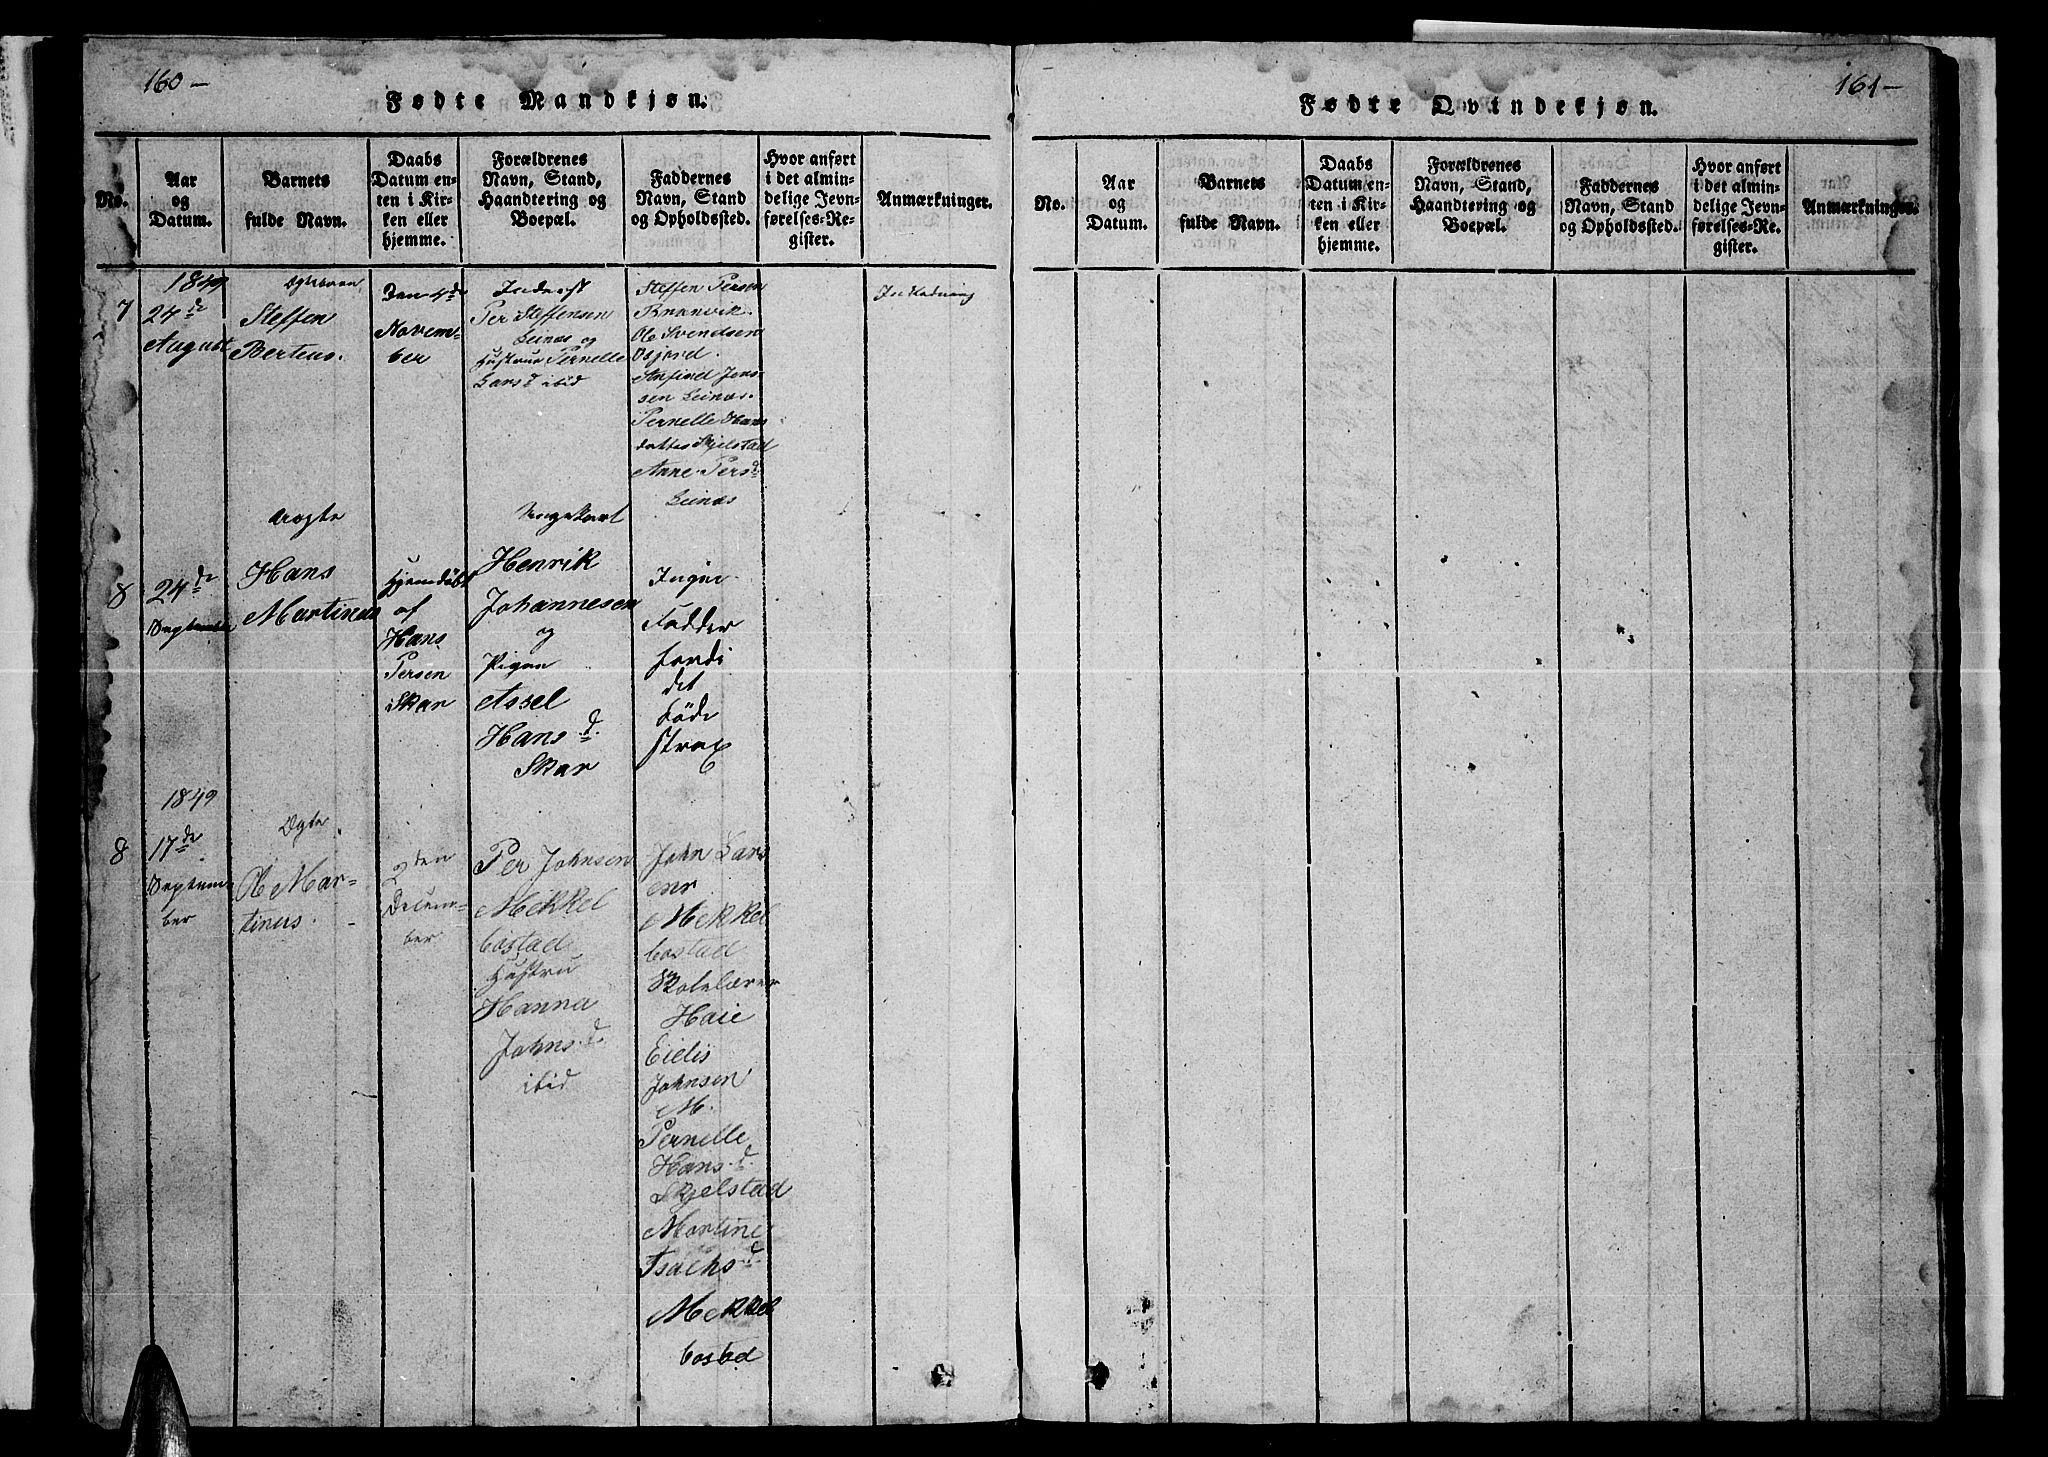 160 -
Fødte Mandkjøn.
No.
Aar
og
Datum.
Barnets
fulde Navn.
Daabs
Datum en-
ten i Kir-
ken eller
hjemme.
Forældrenes
Navn, Stand,
Haandtering og
Boepæl.
Faddernes
Navn, Stand
og Opholdssted.
Hvor anført
i det almin-
delige Jevn-
førelses-Re-
gister.
Anmærkninger.
7
1849
24de
August
Steffen
Berteus.
Den 4d
Novem-
ber
Inderst
Per Steffensen
Leinæs og
Hustrue Pernelle
Larsd ibid
Steffen Persen
Ole Svendsen
Osjord.
Jens-
sen Leinæs.
Pernelle Hans
datter Skjelstad
Anne Persd
Leinæs
8
24de
September
uægte
Hans
Martinus
Hjemdöbt
af
Hans
Persen
Skar
Ungekarl
Henrik
Johannesen
og
Pigen
Assel
Hans.d.
Skar
Ingen
Fadder
fordi
det
döde
strax
8
1849
17de
Septem-
ber
Ægte
Ole Mar-
tinus.
2den
Decem-
ber
Per Johnsen
Mekkel
bostad
Hustru
Hanna
Johns.d.
ibid
John Lars
enr
Mekkel
bostad
Skolelærer
Haie
Eidis
Johnsen
M.
Pernelle
Hans.d.
Skjelstad
Martine
Isachsd.
Mekkel
bostd
161-
Fødte Qvindekjøn.
No.
Aar
og
Datum.
Barnets
fulde Navn.
Daabs
Datum en-
ten i Kir-
ken eller
hjemme.
Forældrenes
Navn, Stand,
Haandtering og
Boepæl.
Faddernes
Navn, Stand
og Opholdssted.
Hvor anført
i det almin-
delige Jevn-
førelses-Re-
gister.
Anmærkninger.